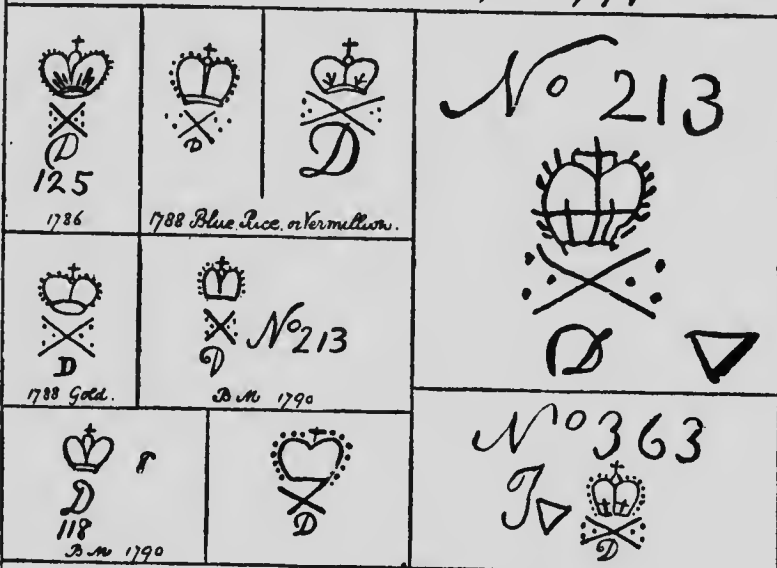 D
125
1786
D
D
1788 Blue, Puce, or Vermillion.
No 213
D
D
1788 Gold.
No 213
D
B M 1790
D
118
B M 1790
D
No 363
T
D